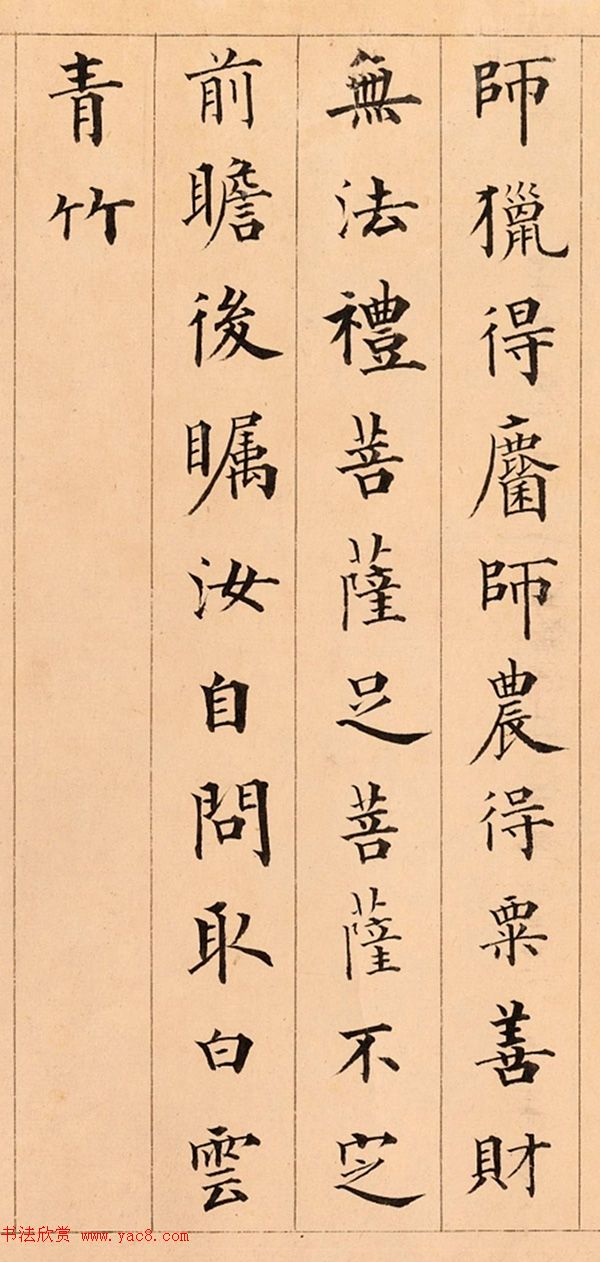 師獵得麕師農得粟善財
無法禮菩薩足菩薩不定
前瞻後瞩汝自問取白雲
青竹
书法欣赏 www.yac8.com